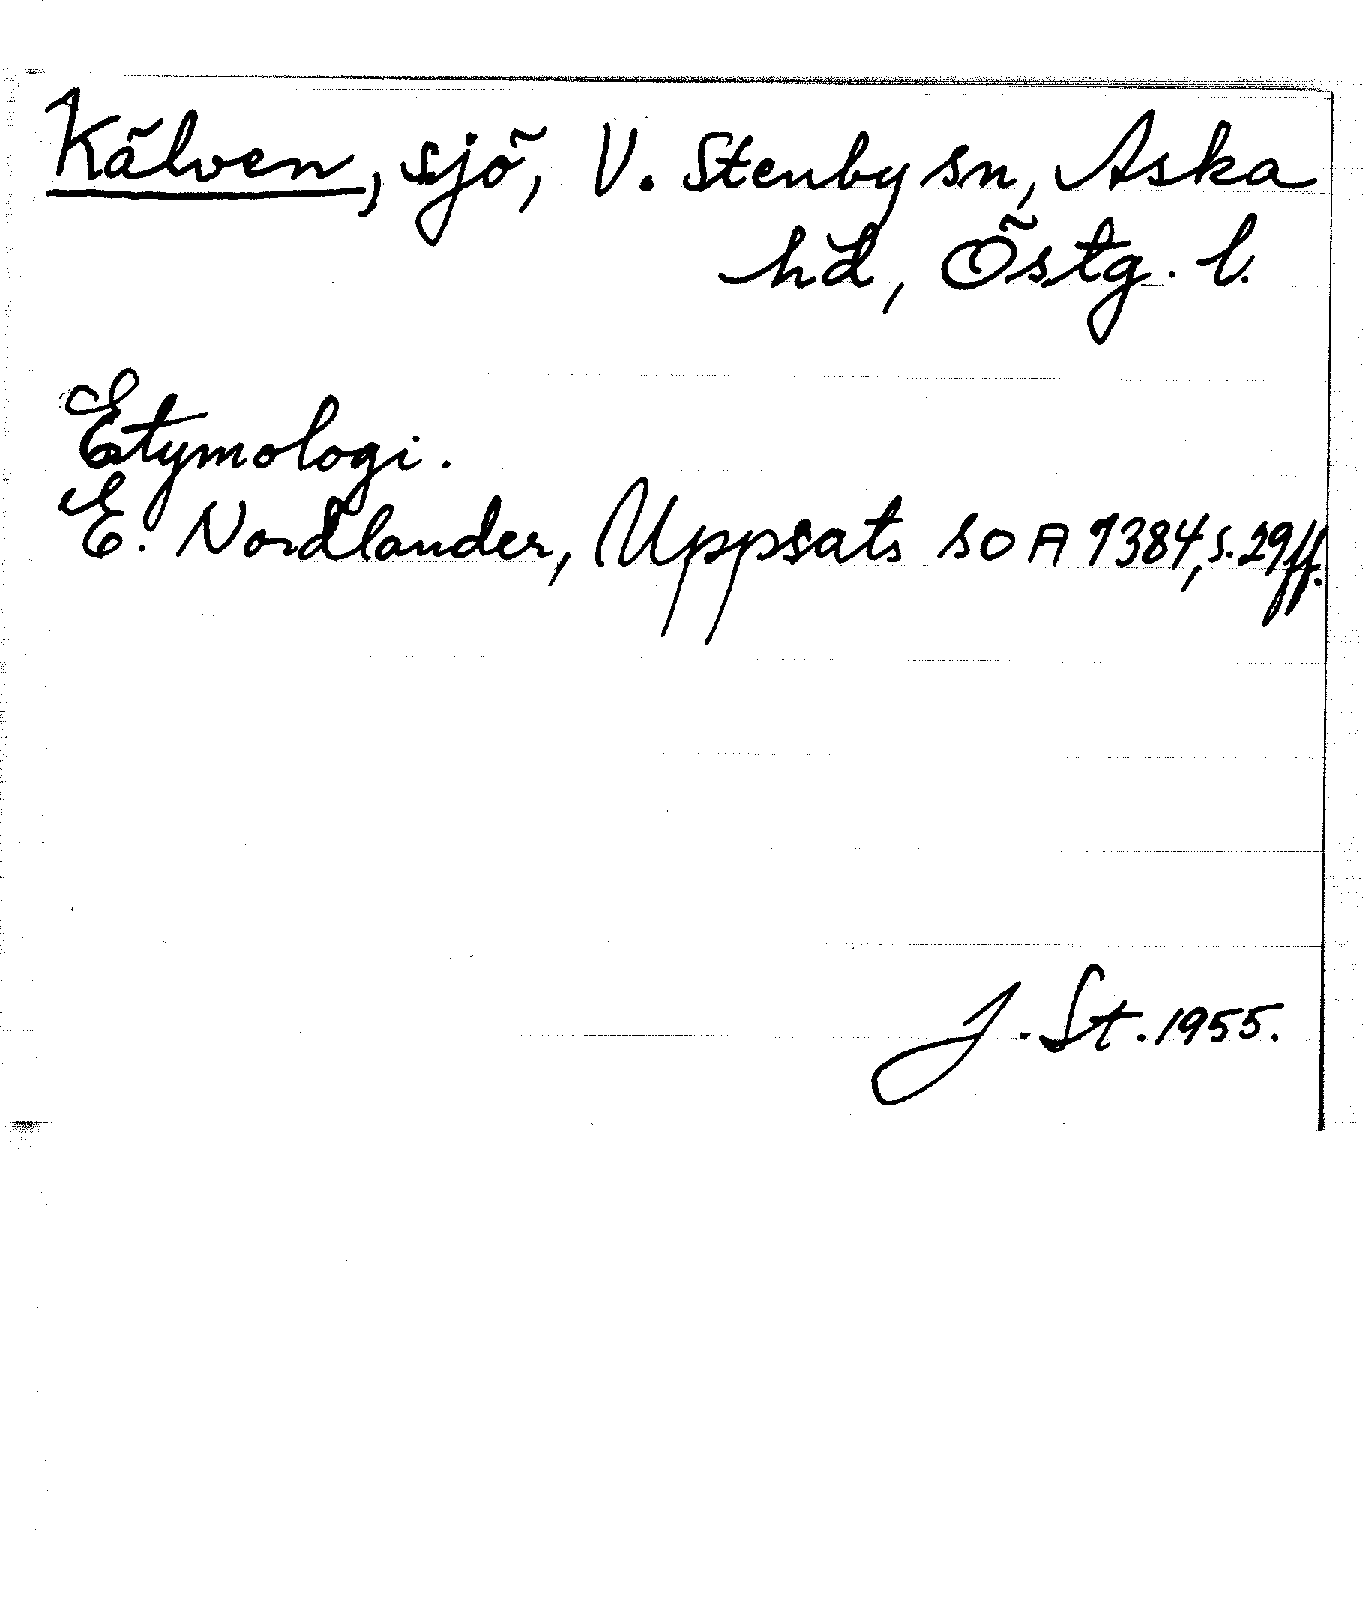 Kälven, sjö, V. Stenby sn, Aska
hd, Östg. l.
Etymologi.
E. Nordlander, Uppsats SOA 1384, s. 29 ff.
J. St. 1955.